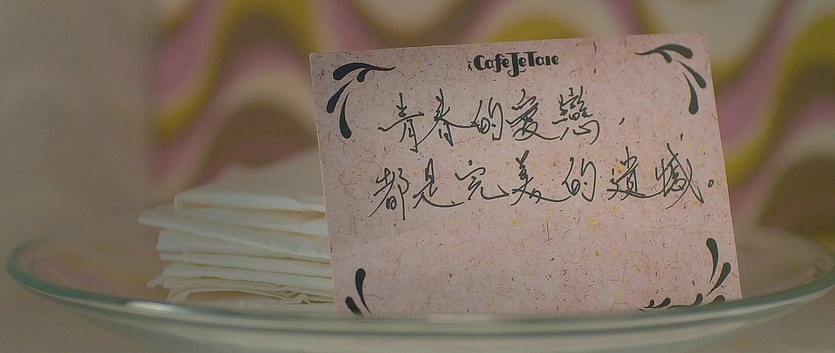 Cafe Je Tare
青春的愛戀，
都是完美的遺憾。